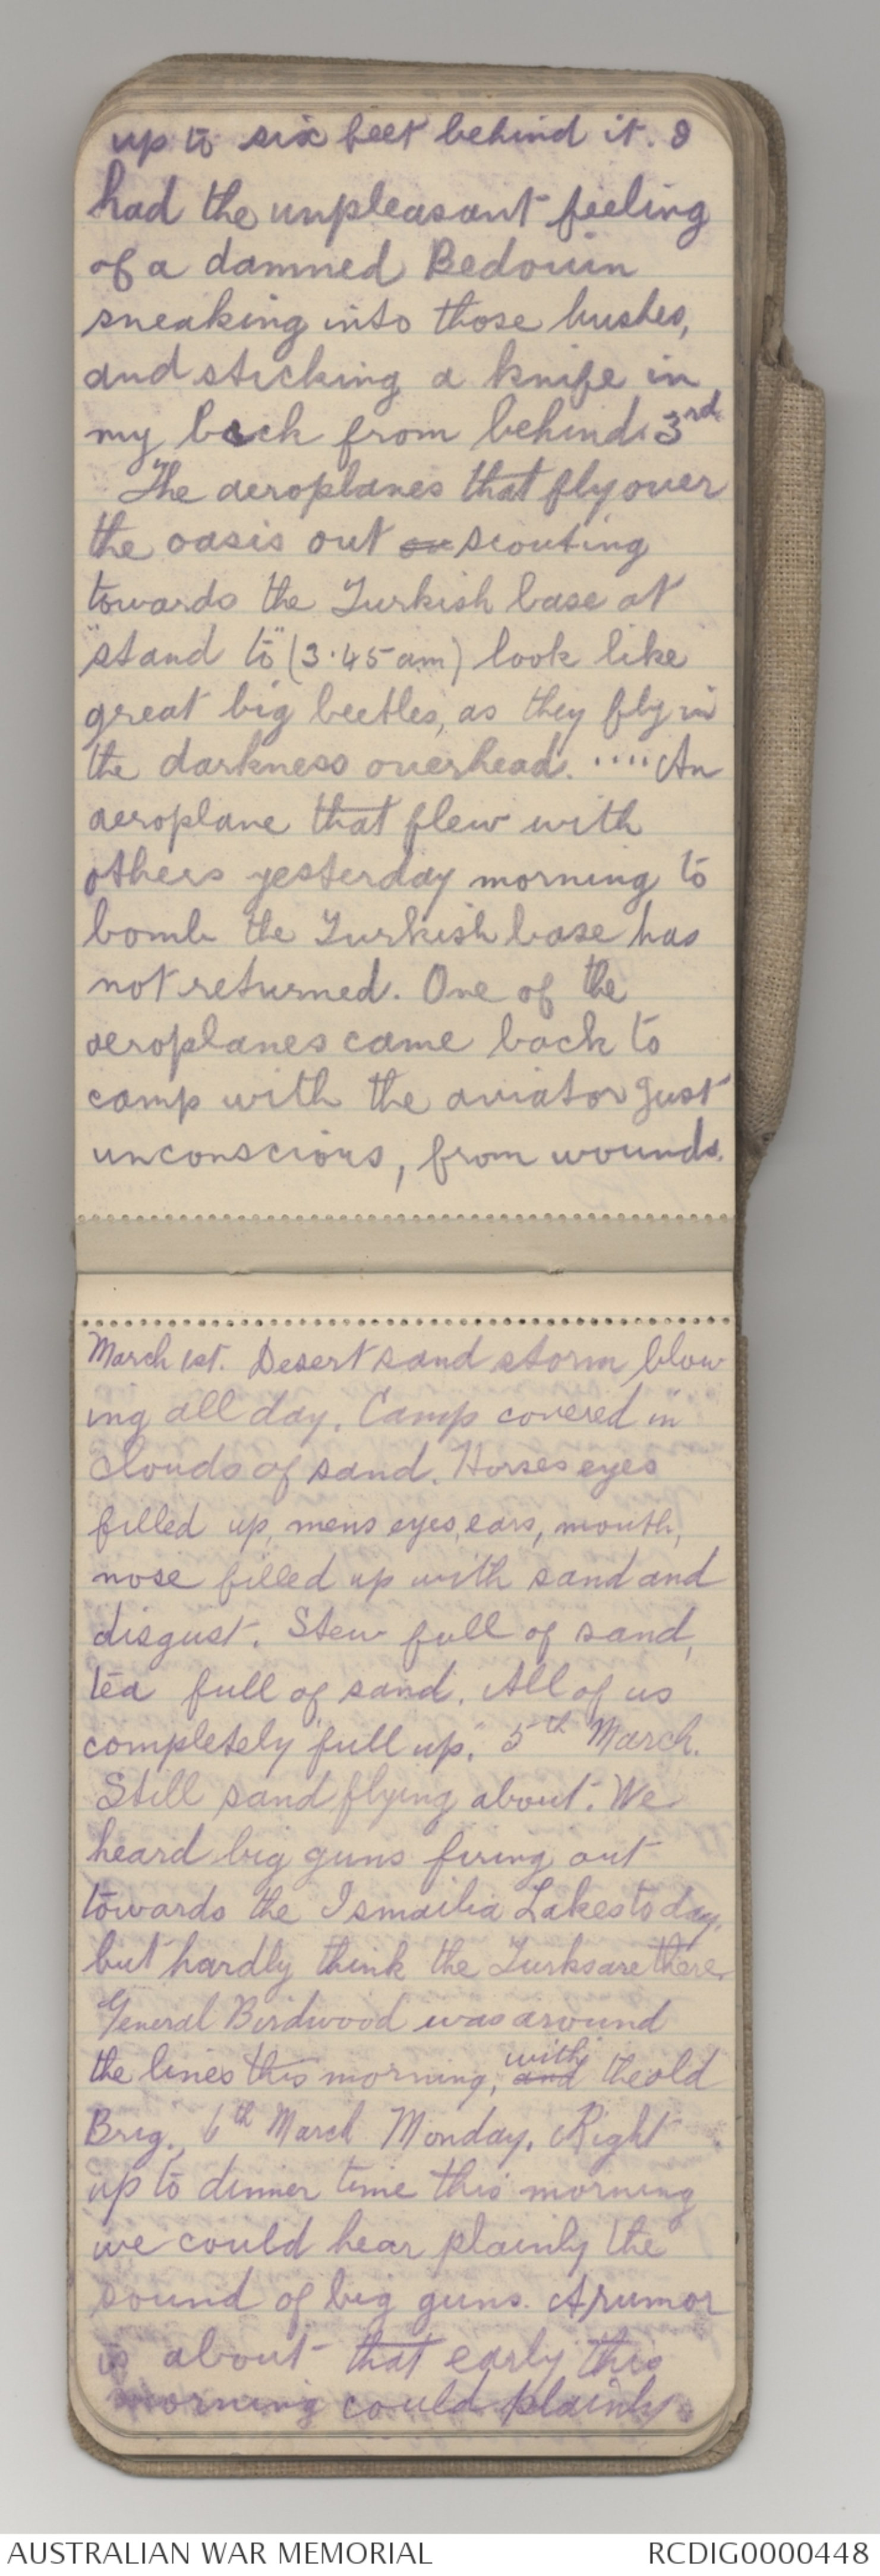 up to six feet behind it. I
had the unpleasant feeling
of a damned Bedouin
sneaking into those bushes,
and sticking a knife in
my back from behind. 3rd
The aeroplanes that fly over
the oasis out on scouting
towards the Turkish base at
"stand to" (3.45 am) look like
great big beetles, as they fly in
the darkness overhead. .... An
aeroplane that flew with
others yesterday morning to
bomb the Turkish base has
not returned. One of the
aeroplanes came back to
camp with the aviator just
unconscious, from wounds.
March 1st. Desert sand storm blow
ing all day. Camp covered in
clouds of sand. Horses eyes
filled up, mens eyes, ears, mouth,
nose filled up with sand and
disgust. Stew full of sand,
tea full of sand. All of us
completely "full up." 5th March.
Still sand flying about. We
heard big guns firing out
towards the Ismailia Lakes today,
but hardly think the Turks are there.
General Birdwood was around
the lines this morning, and with the old
Brig. 6th March Monday. Right
up to dinner time this morning
we could hear plainly the
sound of big guns. A rumor
is about that early this
morning could plainly
AUSTRALIAN WAR MEMORIAL RCDIG0000448